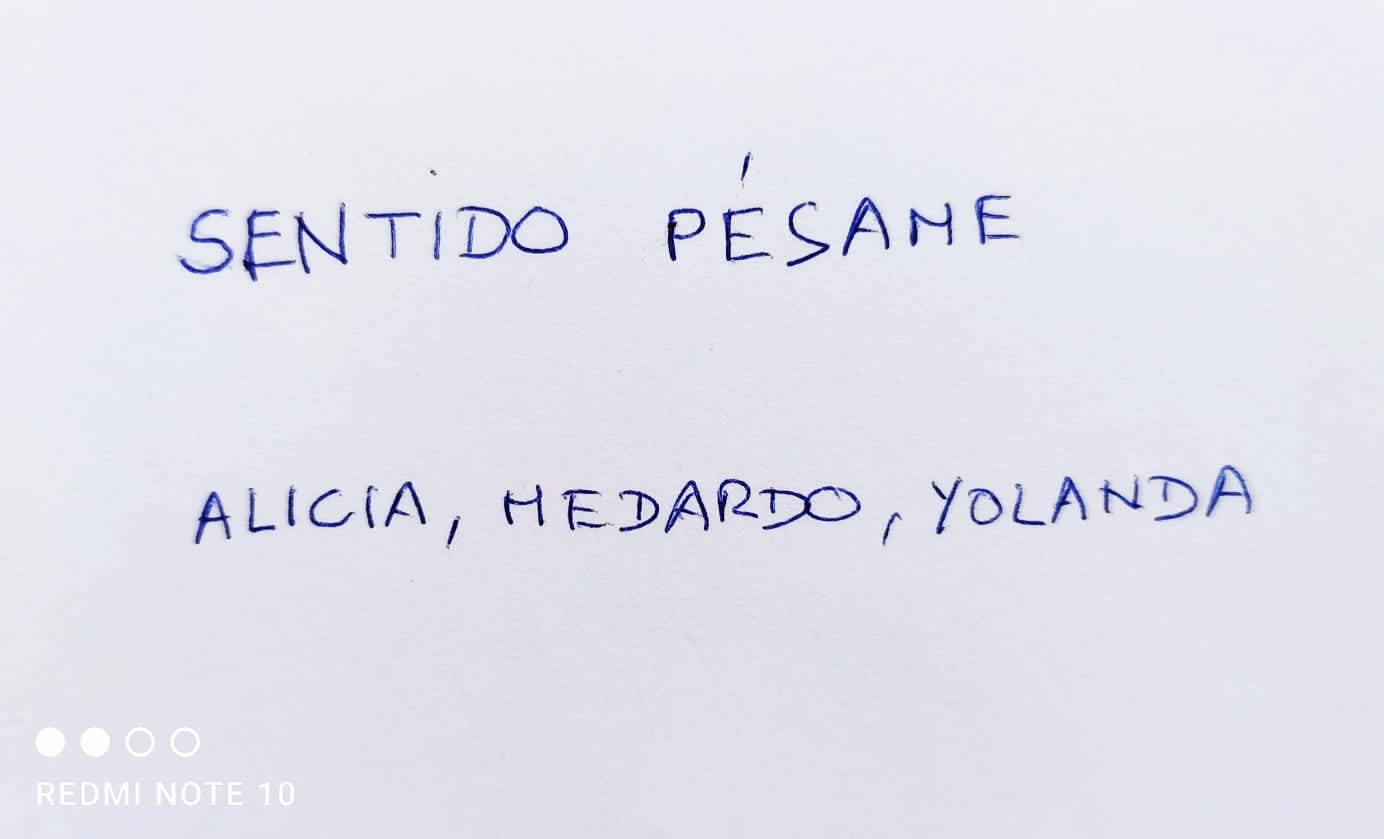 SENTIDO PÉSAME
ALICIA, MEDARDO, YOLANDA
REDMI NOTE 10